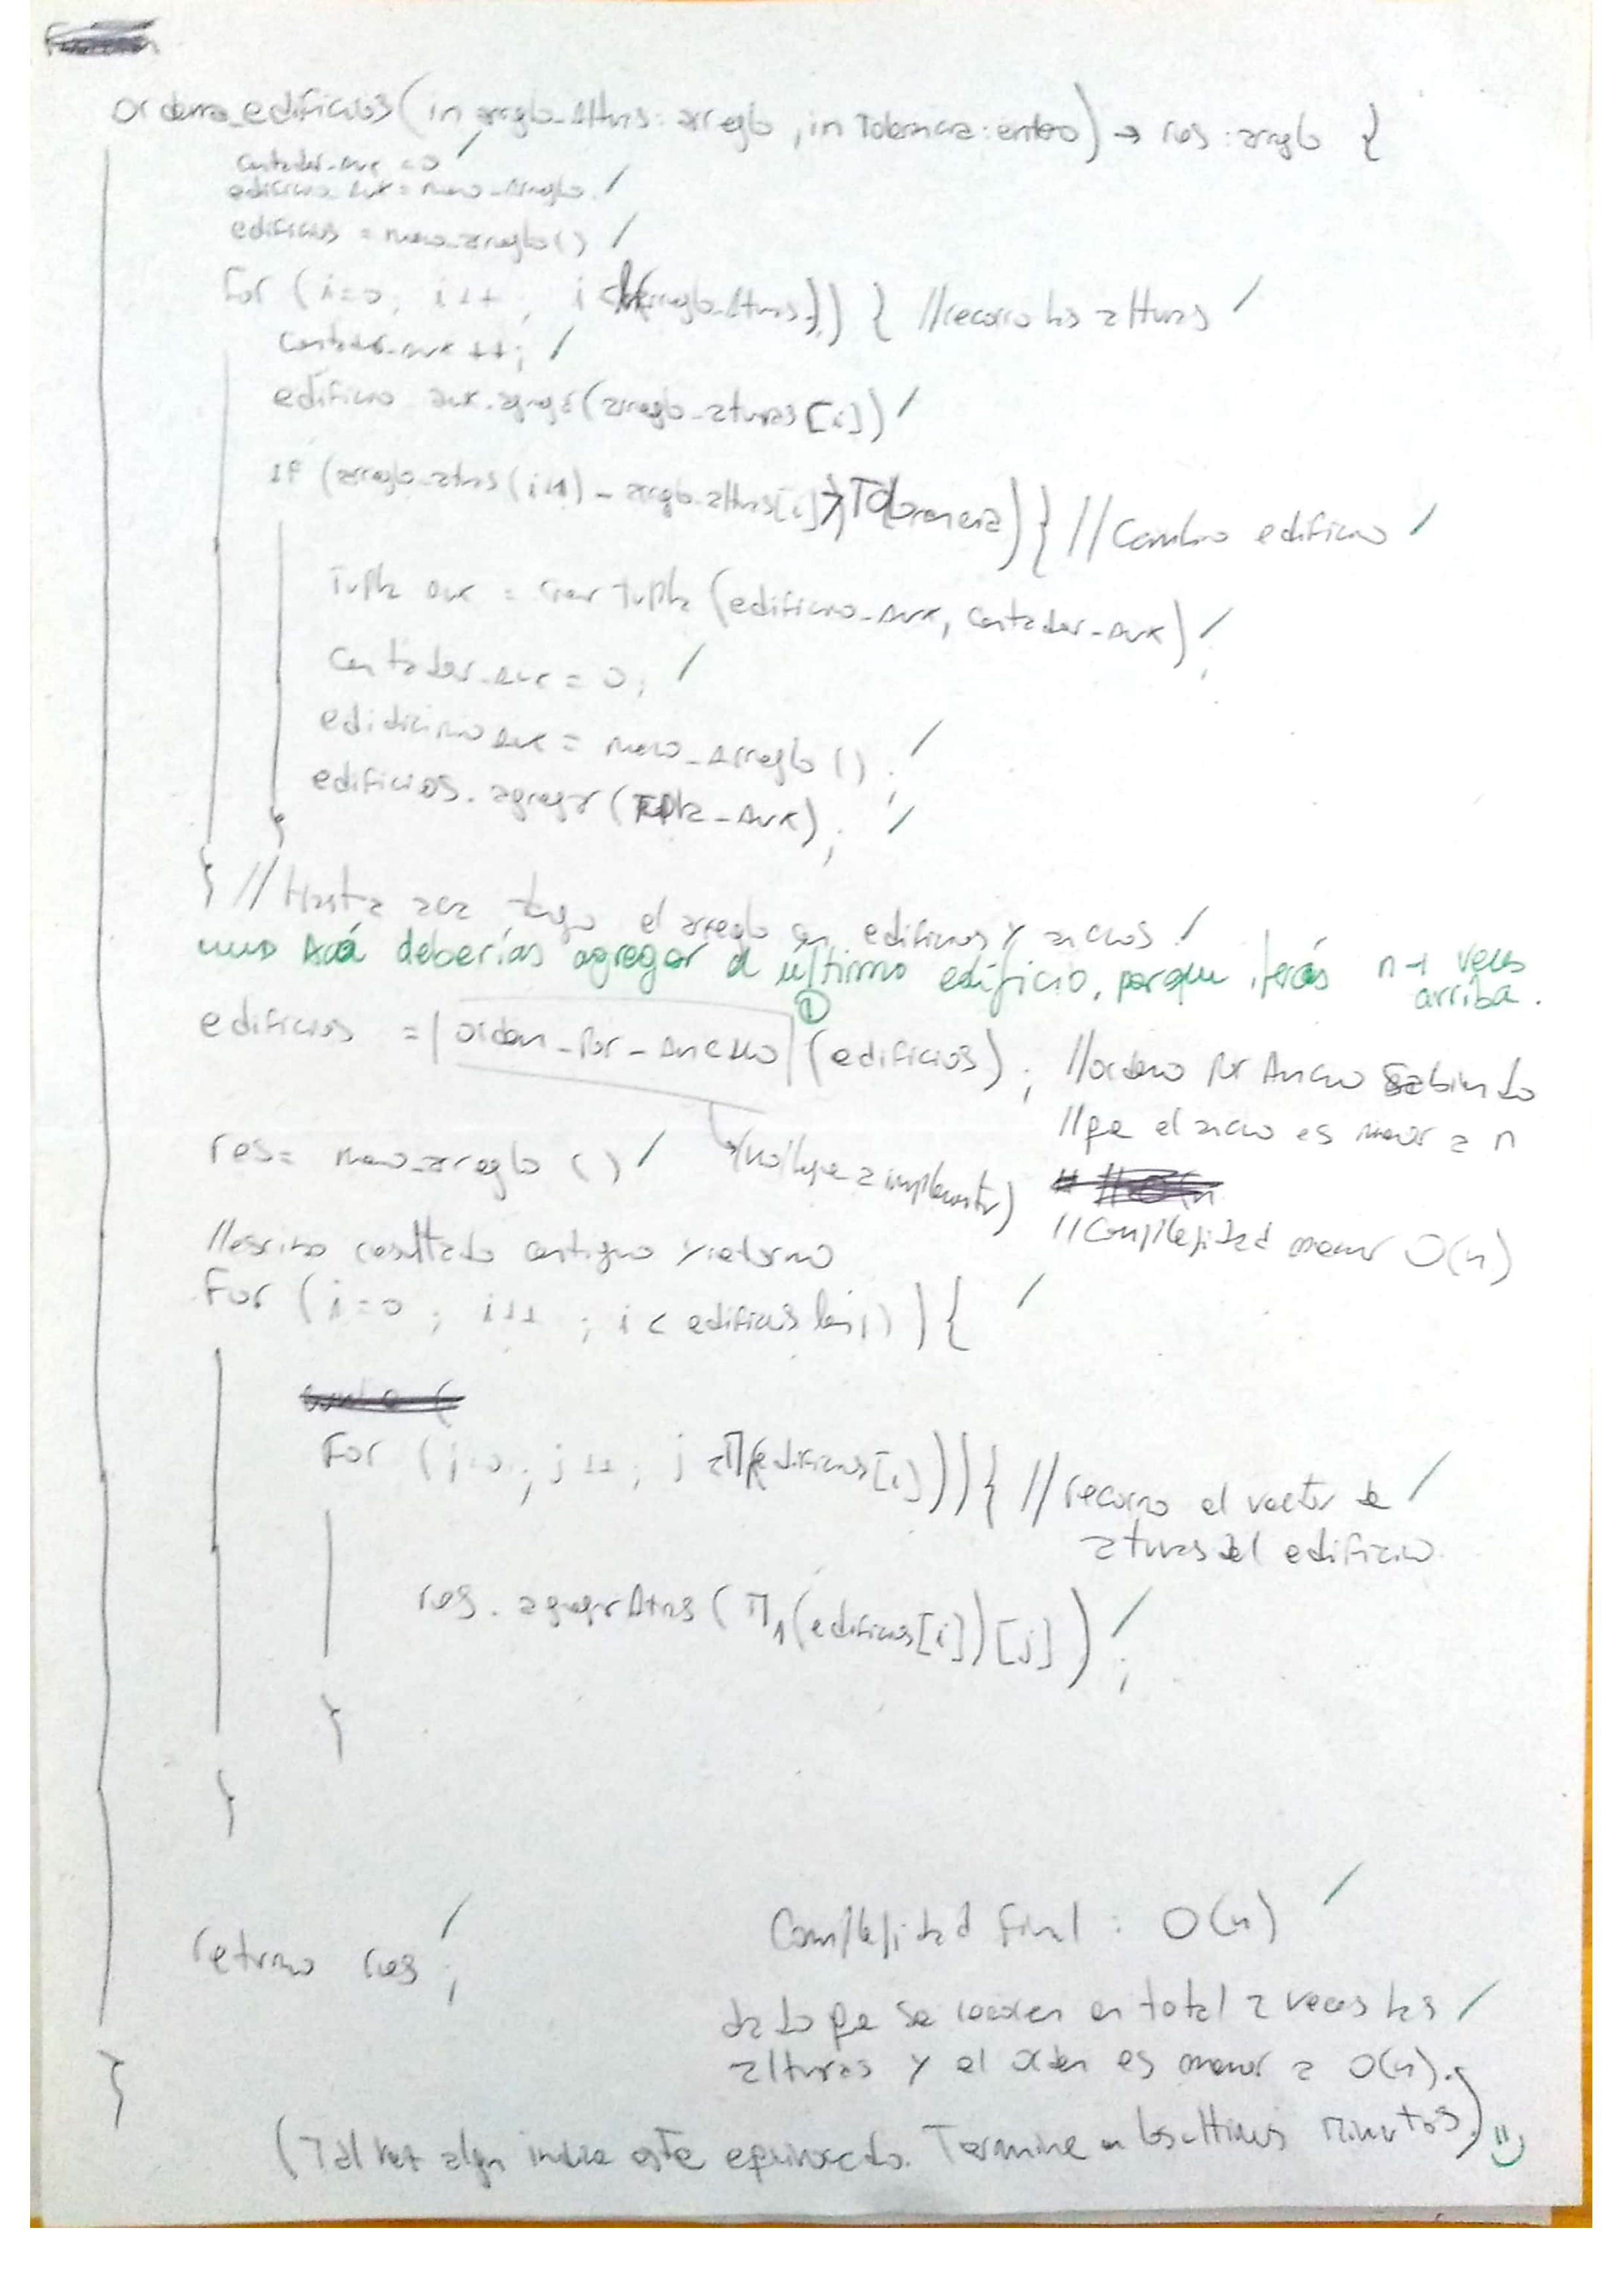 ordena_edificios(in arreglo_Alturas: arreglo, in Tolerancia: entero) → res: arreglo {
contador_aux = 0
edificio_aux = nuevo_Arreglo.
edificios = nuevo_arreglo()
For (i=0; i++; i < (arreglo_Alturas)) { //recorro las alturas
contador_aux ++;
edificio aux.agregar(arreglo_aturas[i])
If (arreglo_aturas(i+1) - arreglo_alturas[i] > Tolerancia) { //Cambio edificio
Tupla aux = crear tupla (edificio_Aux, Contador_Aux);
Contador_aux = 0;
edidicinio aux = nuevo_Arreglo ();
edificios.agregar(Tupla_Aux);
}
} //Hasta aca tengo el arreglo con edificios y anchos.
Acá deberías agregar el último edificio, porque iterás n-1 veces
arriba.
①
edificios = orden_Por_Ancho (edificios); //ordeno por Ancho Sabiendo
//que el ancho es menor a n
res= nuevo_arreglo () (no llegue a implementar)
//Complejidad menor O(n)
//escribo resultado contiguo y retorno
For (i=0; i++; i < edificios len()) {
For (j=0; j++; j < Π(edificios[i])) { //recorro el vector de
aturas del edificio.
res.agregarAtras(Π₁(edificios[i])[j]);
}
}
Complejidad Final: O(n)
retorno res;
dado que se recorren en total 2 veces las
alturas y el orden es menor a O(n).
}
(Tal vez algn indice este equivocado. Termine en los ultimos Minutos)